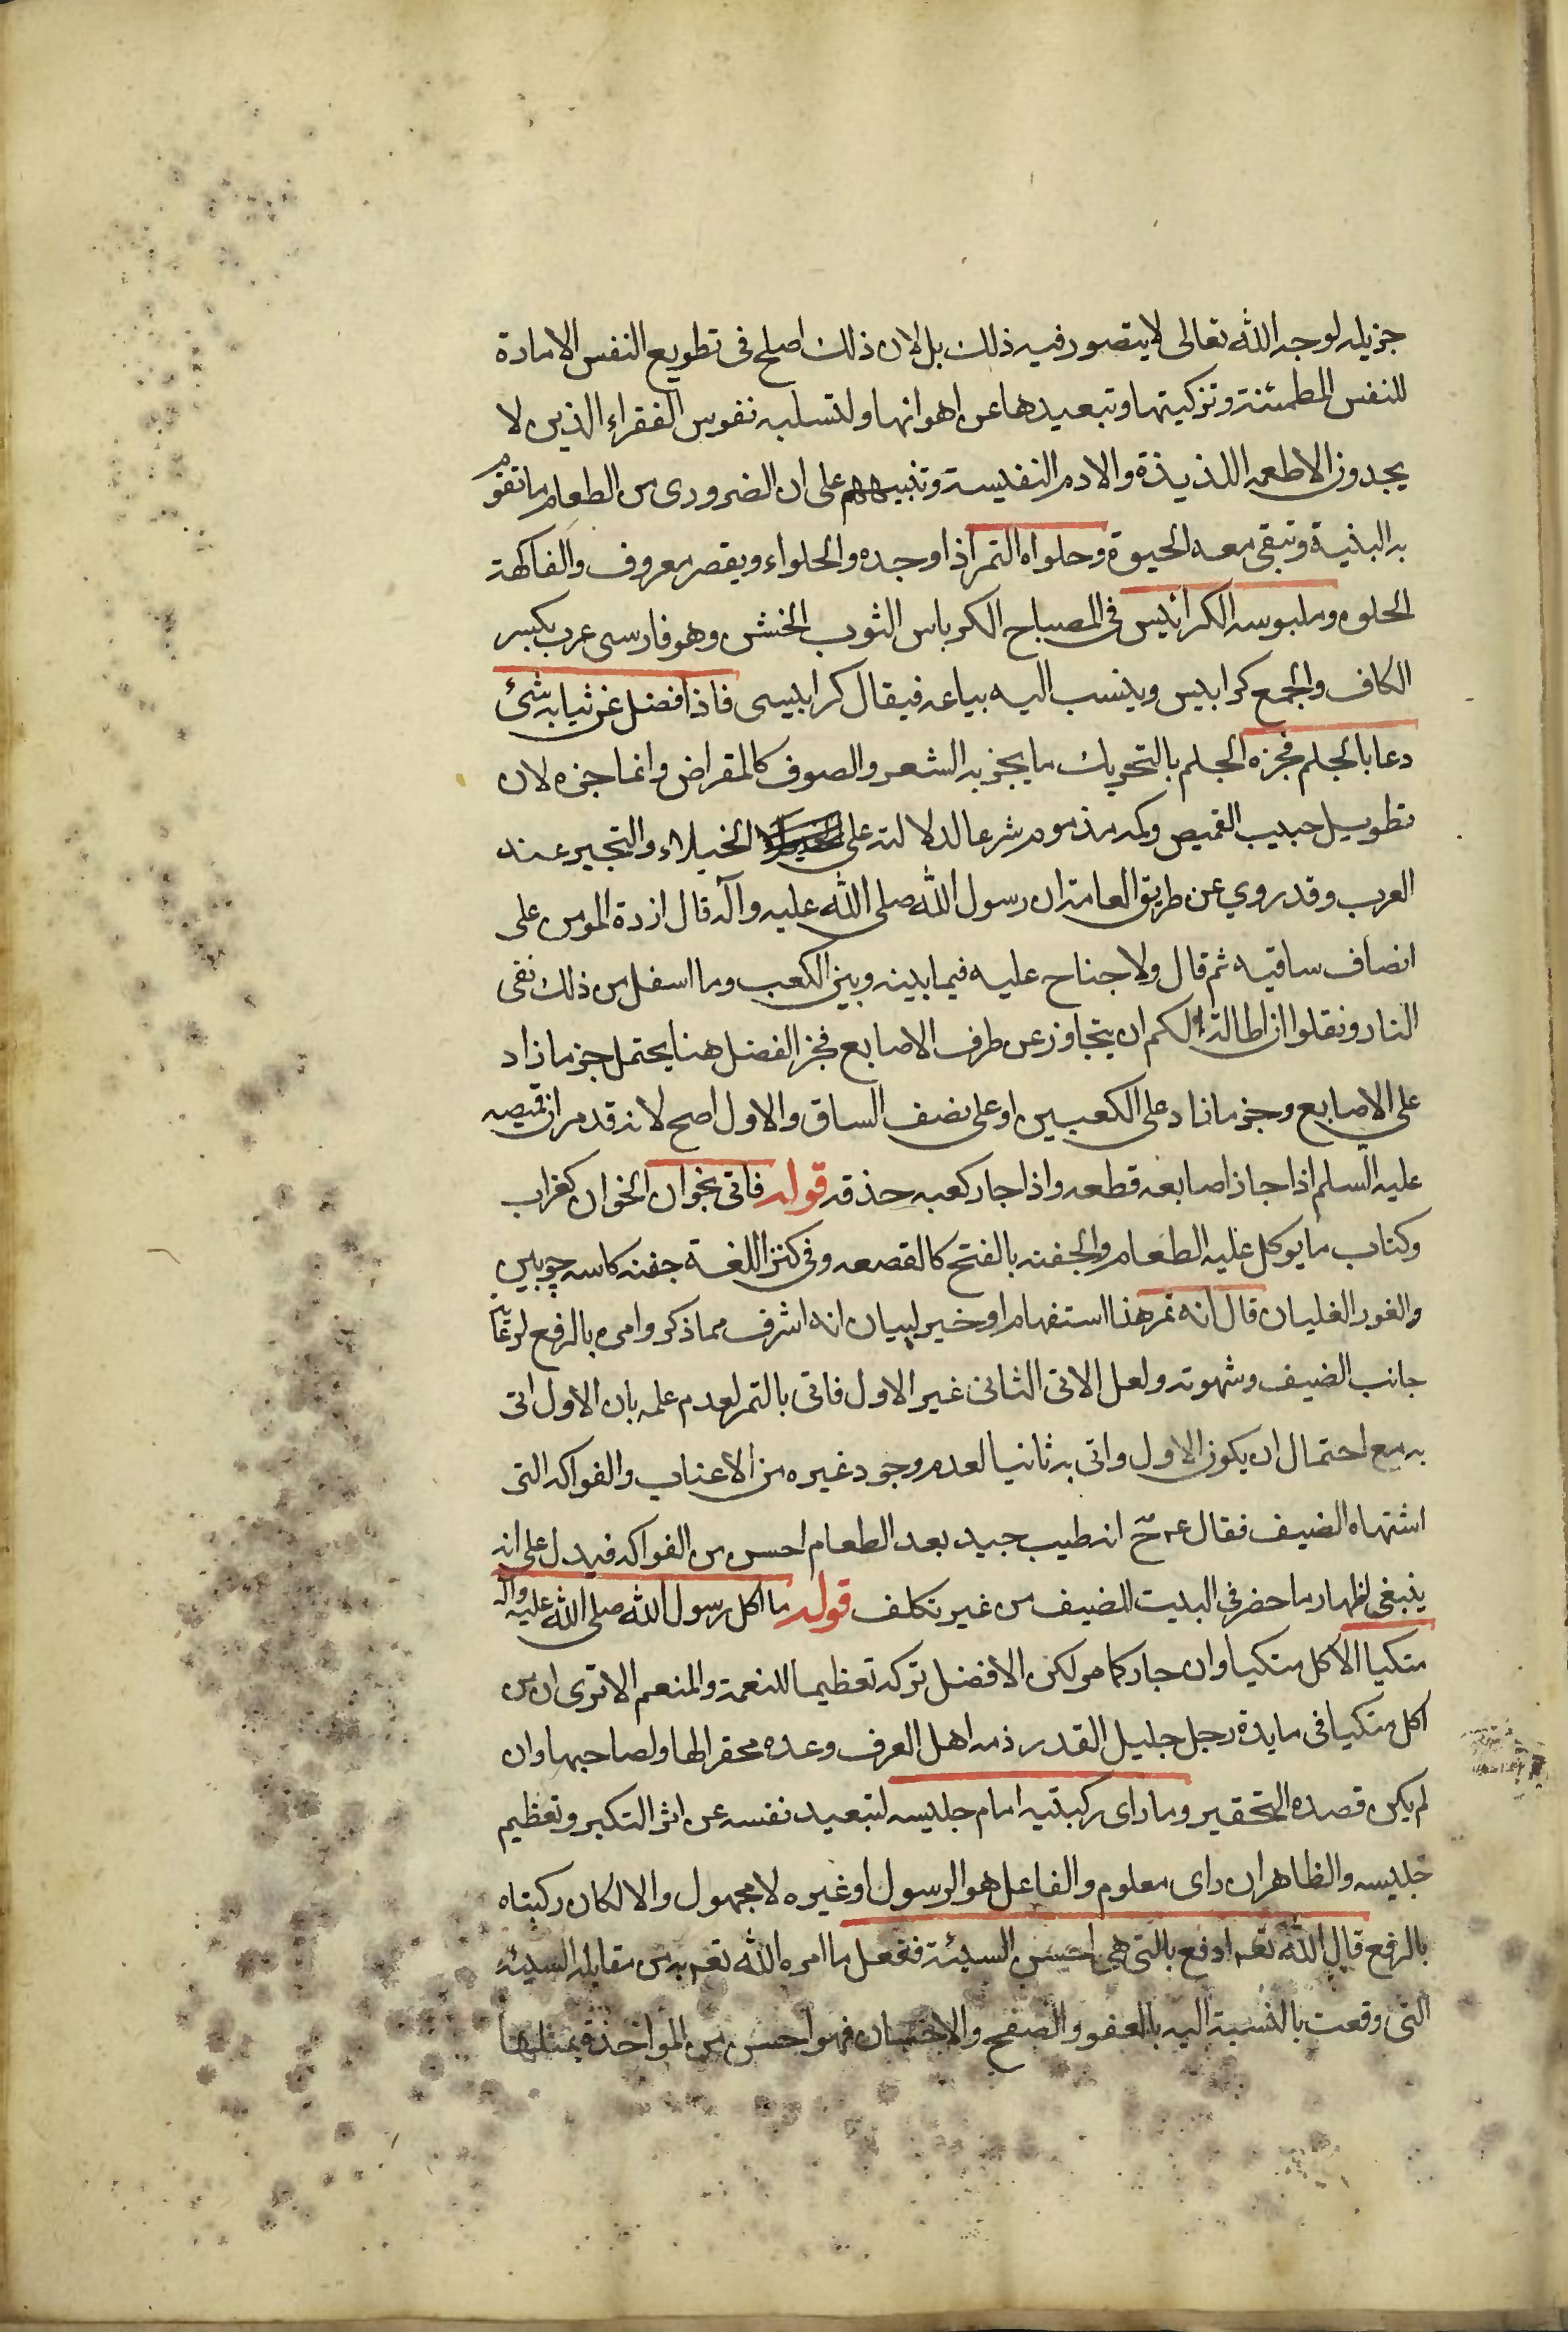 جزيله لوجه الله تعالى لا يتصور فيه ذلك بل لان ذلك اصلح فى تطويع النفس الامارة
للنفس المطمئنة وتزكيتها وتبعيدها عن اهوائها ولتسلبه نفوس الفقراء الذين لا
يجدون الاطعمه اللذيذة والادم النفيسة وتنبيههم على ان الضرورى من الطعام ما تقوم
به البنية وتبقى معه الحيوة وحلواه التمر اذا وجده والحلواء ويقصر معروف والفاكهة
الحلوه وملبوسه الكرابيس فى المصباح الكرباس الثوب الخشن وهو فارسى عرب بكسر
الكاف والجمع كرابيس وينسب اليه بياعه فيقال كرابيسى فاذا فضل عن ثيابه شئ
دعا بالجلم فجزه الجلم بالتحريك ما يجز به الشعر والصوف كالمقراض وانما جزه لان
تطويل جيب القميص وكمه مذموم شرعا لدلالته على الخيلاء والتجبر عند
العرب وقد روي عن طريق العامة ان رسول الله صلى الله عليه وآله قال ازرة المومن على
انصاف ساقيه ثم قال ولا جناح عليه فيما بينه وبين الكعب وما اسفل من ذلك نفى
النار ونقلوا ان اطالة الكم ان يتجاوز عن طرف الاصابع فجز الفضل هنا يحتمل جز ما زاد
على الاصابع وجز ما زاد على الكعبين او على نصف الساق والاول اصح لانه قد مر ان قميصه
عليه السلم اذا جاز اصابعه قطعه واذا جاز كعبه حذقه قوله فاتى بخوان الخوان كغراب
وكتاب ما يوكل عليه الطعام والجفنه بالفتح كالقصعه وفى كنز اللغة جفنه كاسه چوبين
والفور الغليان قال انه تمر هذا استفهام او خبر لبيان انه اشرف مما ذكر وامره بالرفع لرعاية
جانب الضيف وشهوته ولعل الاتى الثانى غير الاول فاتى بالتمر لعدم علمه بان الاول اتى
به مع احتمال ان يكون الاول واتى به ثانيا لعدم وجود غيره من الاعناب والفواكه التى
اشتهاه الضيف فقال ع ح انه طيب جيد بعد الطعام احسن من الفواكه فيدل على انه
ينبغى اظهار ما حضر فى البيت للضيف من غير تكلف قوله ما اكل رسول الله صلى الله عليه وآله
متكيا الاكل متكيا وان جاز كما مر لكن الافضل تركه تعظيما للنعمة والمنعم الا ترى ان من
اكل متكيا فى مايدة رجل جليل القدر ذمه اهل العرف وعده محقرا لها ولصاحبها وان
لم يكن قصده التحقير وما راى ركبتيه امام جليسه لتبعيد نفسه عن اثر التكبر وتعظيم
جليسه والظاهر ان راى معلوم والفاعل هو الرسول او غيره لا مجهول والا لكان ركبتاه
بالرفع قال الله تعم ادفع بالتى هى احسن السيئة ففعل ما امره الله تعم به من مقابلة السيئه
التى وقعت بالنسبة اليه بالعفو والصفح والاحسان فهو احسن من المواخذة بمثلها